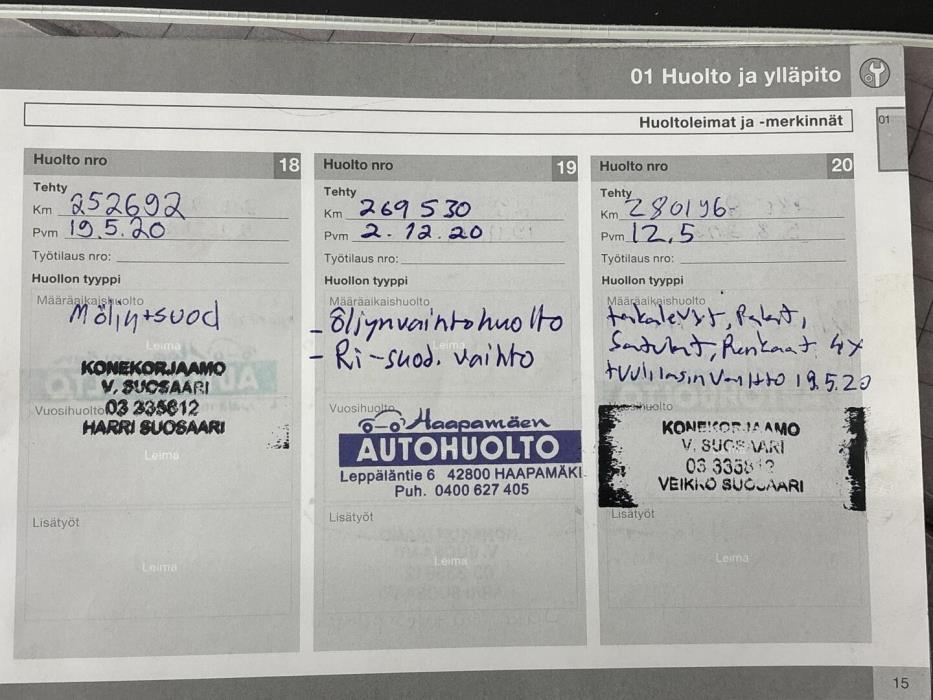 01 Huolto ja ylläpito
Huoltoleimat ja -merkinnät
01
Huolto nro 18
Tehty
Km 252692
Pvm 19.5.20
Työtilaus nro:
Huollon tyyppi
Määräaikaishuolto
Möljn+suod
Leima
KONEKORJAAMO
V. SUOSAARI
03 335812
HARRI SUOSAARI
Vuosihuolto
Leima
Lisätyöt
Leima
Huolto nro 19
Tehty
Km 269530
Pvm 2.12.20
Työtilaus nro:
Huollon tyyppi
Määräaikaishuolto
- öljynvaihtohuolto
Leima
- Ri-suod. vaihto
Vuosihuolto
Haapamäen
AUTOHUOLTO
Leppäläntie 6 42800 HAAPAMÄKI
Puh. 0400 627 405
Lisätyöt
Leima
Huolto nro 20
Tehty
Km 280196
Pvm 12.5
Työtilaus nro:
Huollon tyyppi
Määräaikaishuolto
Satulat, Renkaat 4x
tuulilasin vaihto 19.5.20
Vuosihuolto
KONEKORJAAMO
V. SUOSAARI
03 335812
VEIKKO SUOSAARI
Lisätyöt
Leima
15